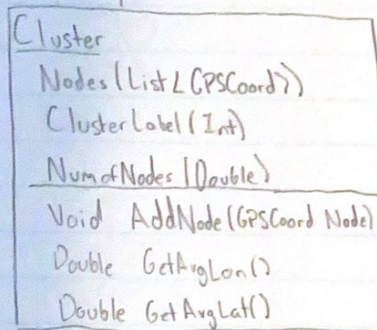 Cluster
Nodes (List<GPSCoord>)
ClusterLabel (Int)
NumofNodes (Double)
Void AddNode(GPSCoord Node)
Double GetAvgLon()
Double GetAvgLat()